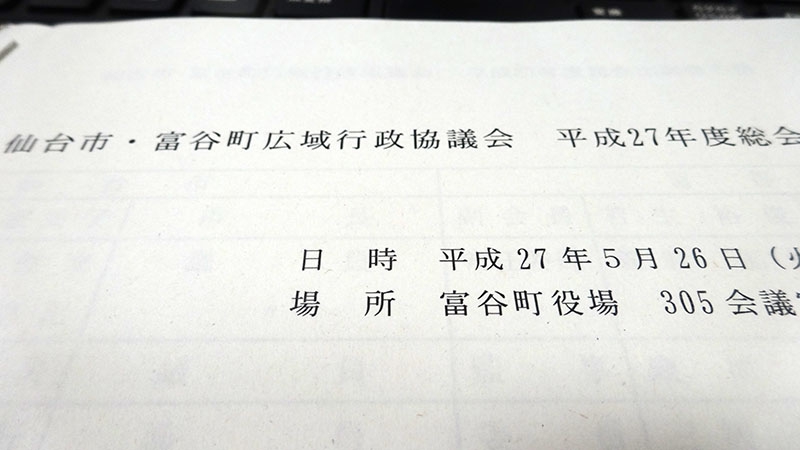 仙台市・富谷町広域行政協議会　平成27年度総会
日　時　平成 27 年 5 月 26 日（火
場　所　富谷町役場　305 会議